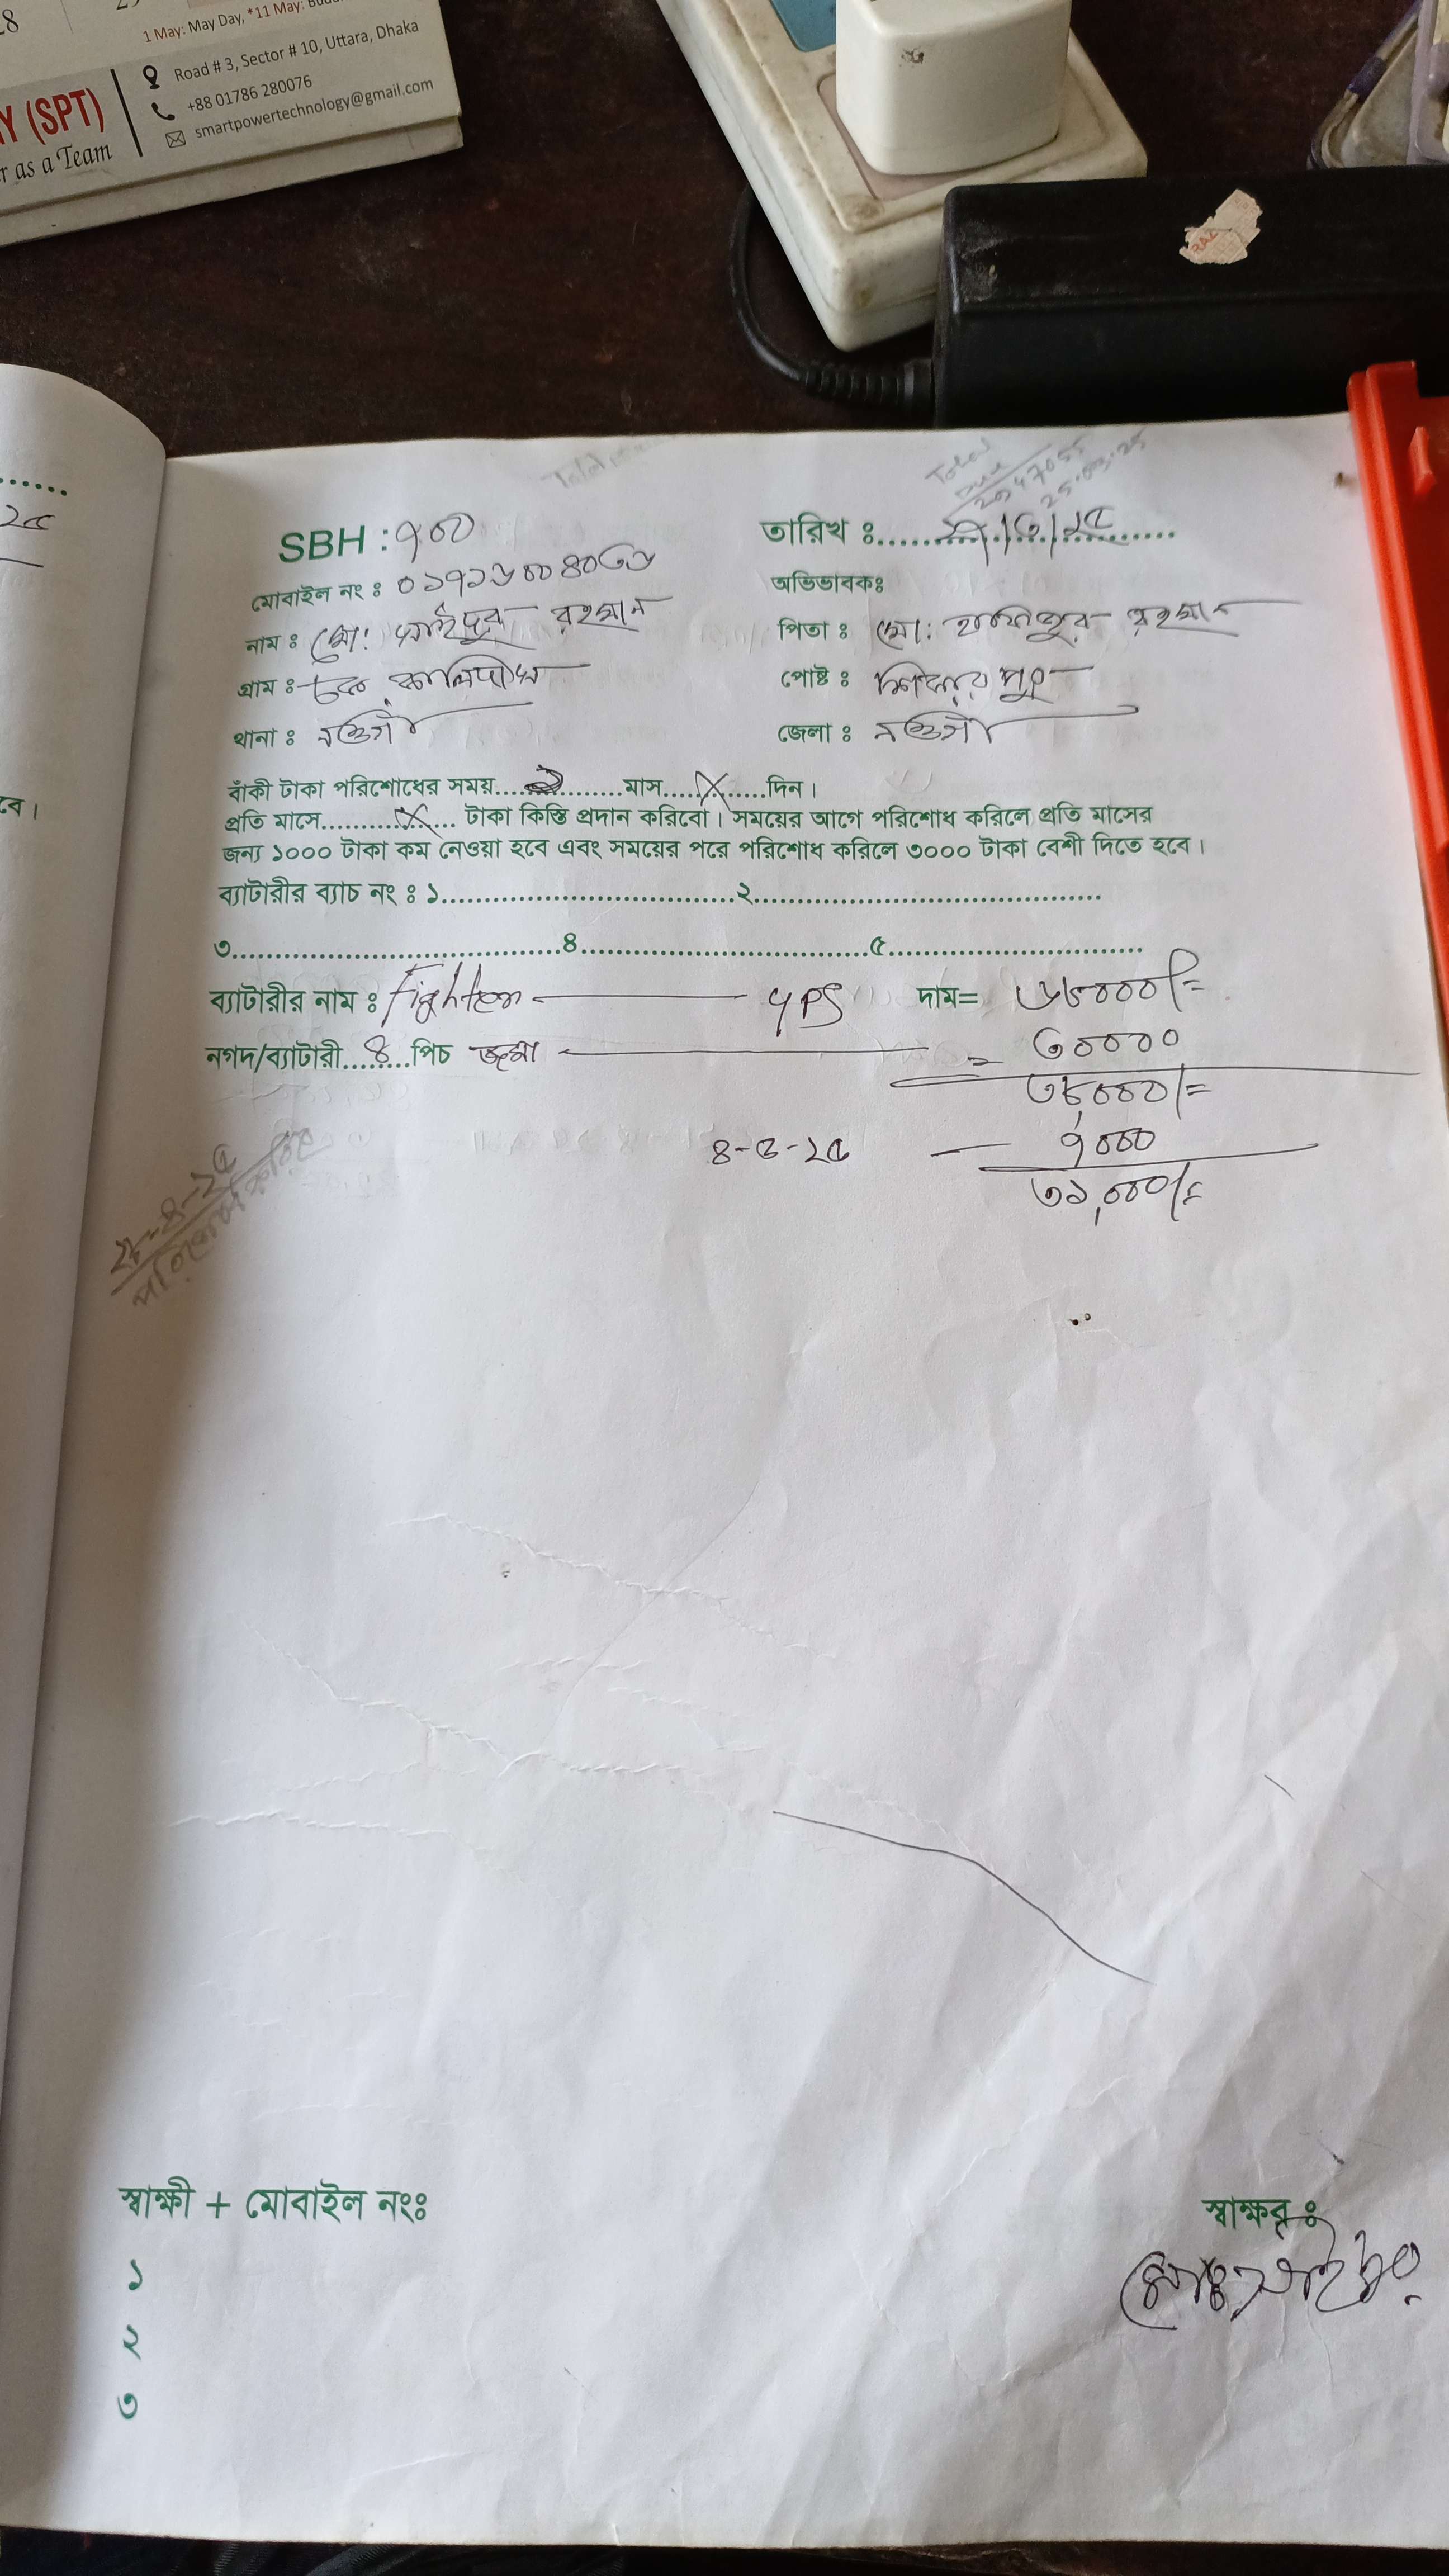 28
1 May: May Day, *11 May:
Road # 3, Sector # 10, Uttara, Dhaka
+88 01786 280076
smartpowertechnology@gmail.com
Y (SPT)
r as a Team
২৫
বে।
Total
Total
Due
25.03.25
SBH : ৭০০
তারিখ ঃ
মোবাইল নং ঃ
অভিভাবকঃ
নাম ঃ মো: সাইদুর রহমান
পিতা ঃ মো: হাফিজুর রহমান
গ্রাম ঃ চক কালিদাস
পোষ্ট ঃ শিকারপুর
থানা ঃ নওগাঁ
জেলা ঃ নওগাঁ
বাঁকী টাকা পরিশোধের সময়.....২.....মাস.....X.....দিন।
প্রতি মাসে.....X..... টাকা কিস্তি প্রদান করিবো। সময়ের আগে পরিশোধ করিলে প্রতি মাসের
জন্য ১০০০ টাকা কম নেওয়া হবে এবং সময়ের পরে পরিশোধ করিলে ৩০০০ টাকা বেশী দিতে হবে।
ব্যাটারীর ব্যাচ নং ঃ ১..........২..........
৩..........৪..........৫..........
ব্যাটারীর নাম ঃ Fighter 4PS দাম= ৬৮০০০/=
নগদ/ব্যাটারী...৪...পিচ জমা = ৩০০০০
৩৮,০০০/=
৪-৫-২৫ — ৭০০০
৩১,০০০/=
২৮-৪-২৫
স্বাক্ষী + মোবাইল নংঃ
স্বাক্ষর ঃ
১
২
৩